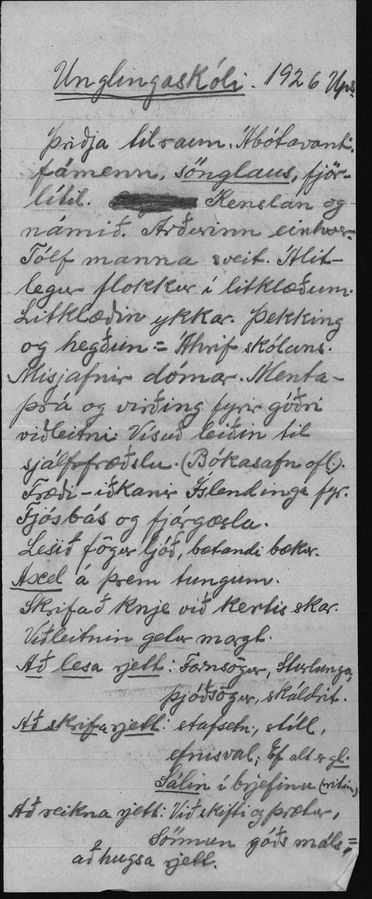 Unglingaskóli. 1926 Ups.
Þriðja tilraun. Ábótavant:
fámenn, sönglaus, fjör-
lítil. Kenslan og
námið. Arðurinn einhver.
Tólf manna sveit. Álit-
legur flokkur í litklæðum.
Litklæðin ykkar. Þekking
og hegðun = Áhrif skólans.
Misjafnir dómar. Menta-
þrá og virðing fyrir góðri
viðleitni. Vísuð leiðin til
sjálfsfræðslu. (Bókasafn ofl.).
Fræði-iðkanir Íslendinga fyr.
Fjósbás og fjárgæsla.
Lesið fögur ljóð, bætandi bækur.
Axel á þrem tungum.
Skrifað knje við kertis skar.
Viðleitnin gelur margt.
Að lesa rjett: Fornsögur, Sturlunga,
þjóðsögur, skáldrit.
Að skrifa rjett: stafsetn., stíll,
efnisval; Ef alt er gl.
Sálin í brjefinu (ritin)
Að reikna rjett: Við skifti og þrætur,
Sönnun góðs máls,=
að hugsa rjett.